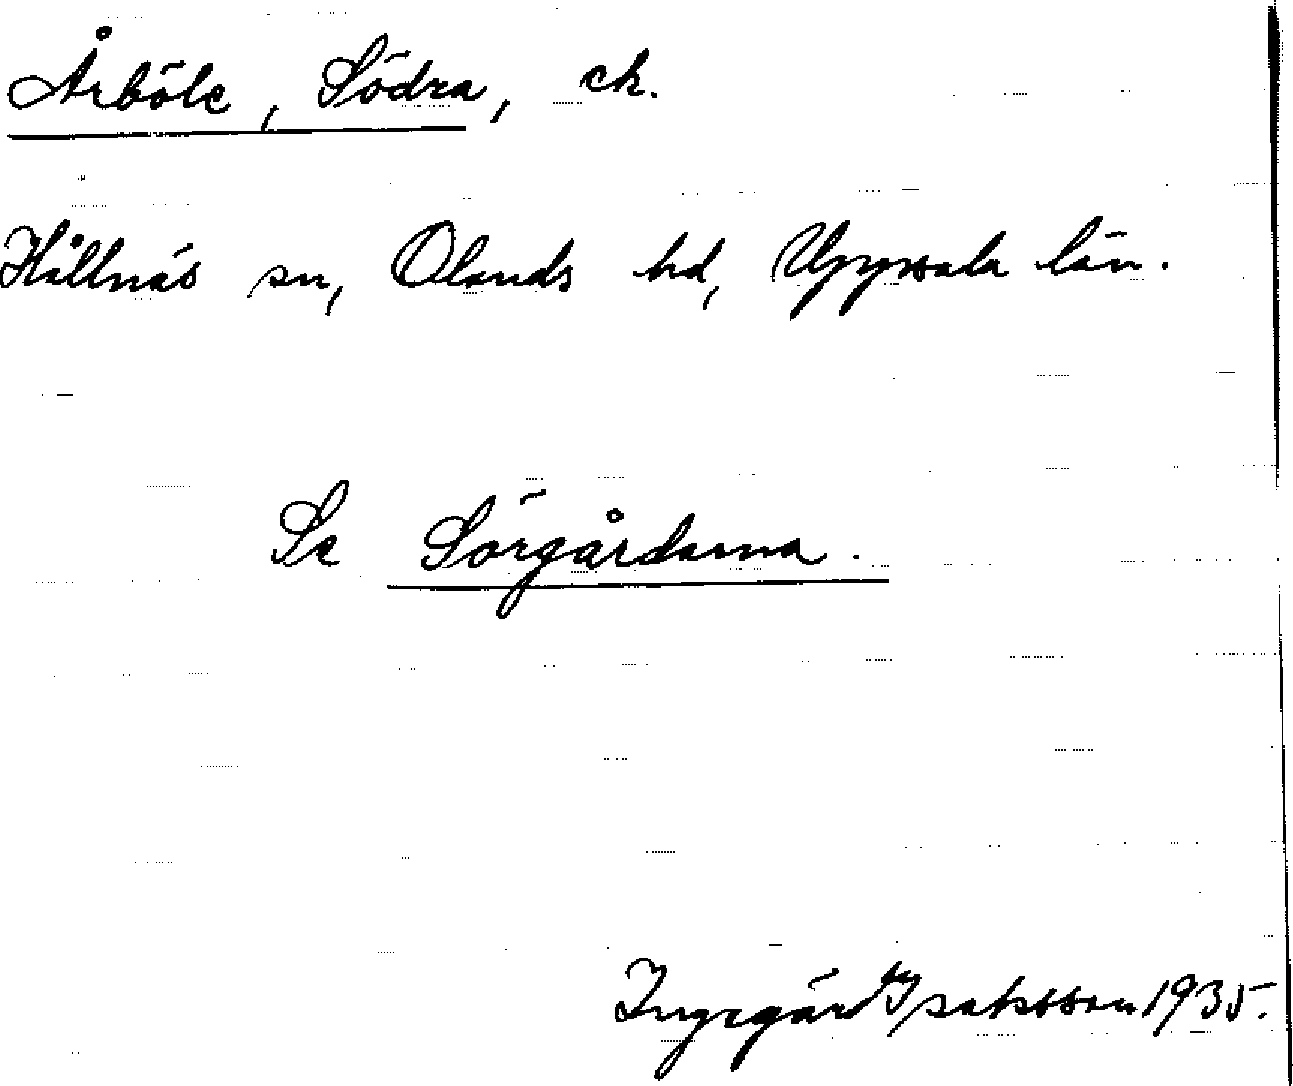 Årböle, Södra, ek.
Hållnäs sn, Olands hd, Uppsala län.
Se Sörgårdarna.
Ingegärd Isaksson 1935.